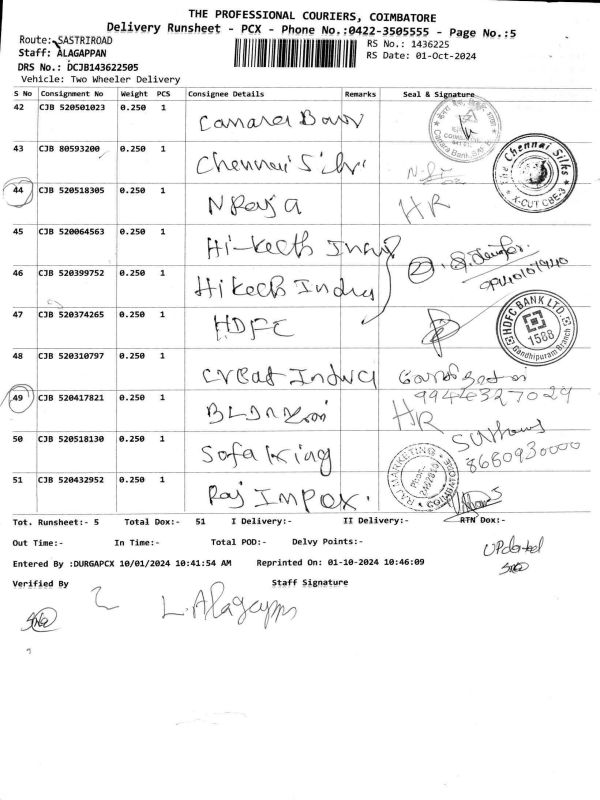 THE PROFESSIONAL COURIERS, COIMBATORE
Delivery Runsheet - PCX - Phone No.:0422-3505555 - Page No.:5
Route: SASTRIROAD
RS No.: 1436225
Staff: ALAGAPPAN
RS Date: 01-Oct-2024
DRS No.: DCJB143622505
Vehicle: Two Wheeler Delivery
S No Consignment No Weight PCS Consignee Details Remarks Seal & Signature
42 CJB 520501023 0.250 1 Canara Bank
43 CJB 80593200 0.250 1 Chennai Silks
The Chennai Silks
X-CUT CBE-3
44 CJB 520518305 0.250 1 N Raja HR
45 CJB 520064563 0.250 1 Hi-keech
46 CJB 520399752 0.250 1 Hikech India
47 CJB 520374265 0.250 1 HDFC
HDFC BANK LTD.
1588
Gandhipuram Branch
48 CJB 520310797 0.250 1 Creat India
9944327029
49 CJB 520417821 0.250 1 HR
50 CJB 520518130 0.250 1 Sofa King
8660930000
51 CJB 520432952 0.250 1 Raj Impex.
RAJ MARKETING
COIMBATORE
Tot. Runsheet:- 5 Total Dox:- 51 I Delivery:- II Delivery:- RTN Dox:-
Out Time:- In Time:- Total POD:- Delvy Points:-
Updated
Entered By :DURGAPCX 10/01/2024 10:41:54 AM Reprinted On: 01-10-2024 10:46:09
Verified By Staff Signature
L. Alagappn